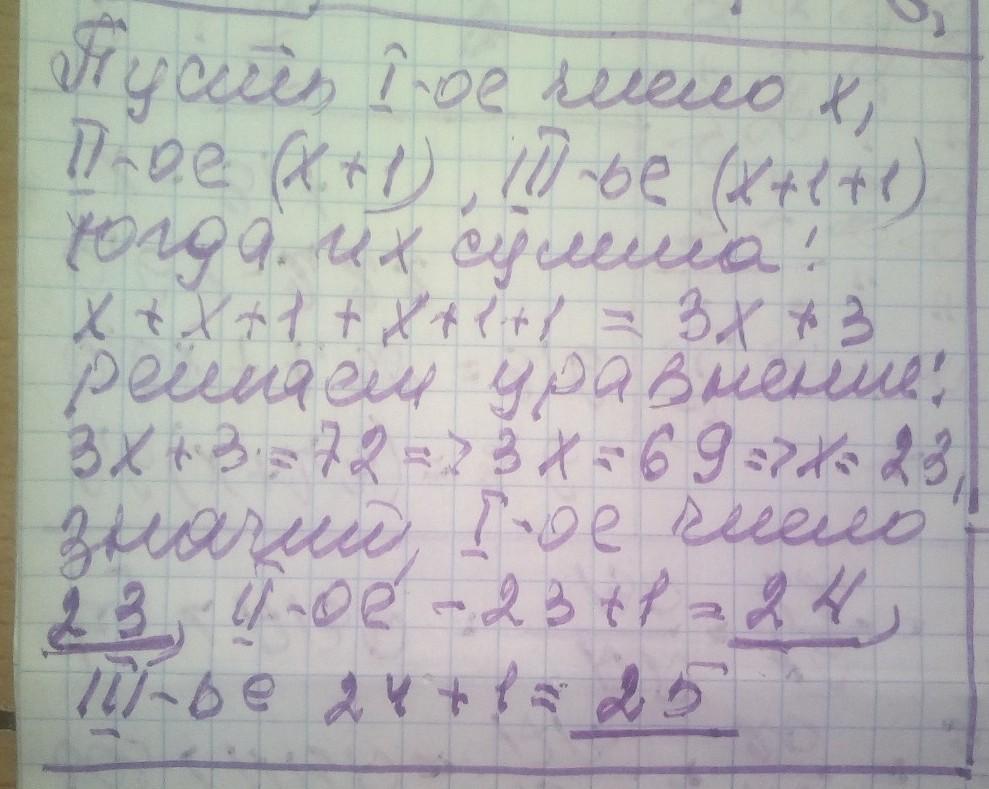 Пусть I-ое число x,
II-ое (x+1), III-ье (x+1+1)
тогда их сумма:
x + x+1 + x+1+1 = 3x + 3
решаем уравнение:
3x+3=72=>3x=69=>x=23,
значит, I-ое число
23, II-ое -23+1=24,
III-ье 24+1=25